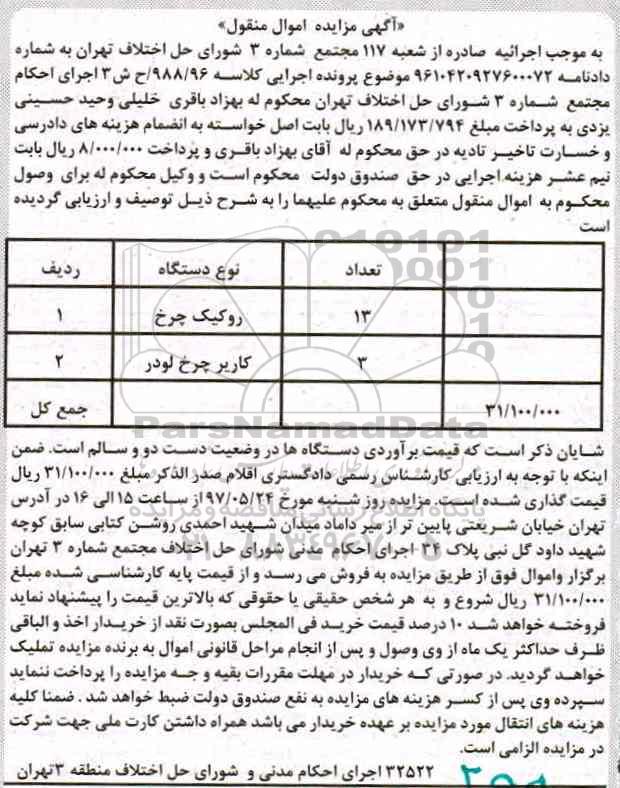 «آگهی مزایده اموال منقول»
به موجب اجرائیه صادره از شعبه ۱۱۷ مجتمع شماره ۳ شورای حل اختلاف تهران به شماره
دادنامه ۹۶۱۰۴۲۰۹۲۷۶۰۰۰۷۲ موضوع پرونده اجرایی کلاسه ۹۸۸/۹۶/ح ش۳ اجرای احکام
مجتمع شماره ۳ شورای حل اختلاف تهران محکوم له بهزاد باقری خلیلی وحید حسینی
یزدی به پرداخت مبلغ ۱۸۹/۱۷۳/۷۹۴ ریال بابت اصل خواسته به انضمام هزینه های دادرسی
و خسارت تاخیر تادیه در حق محکوم له آقای بهزاد باقری و پرداخت ۸/۰۰۰/۰۰۰ ریال بابت
نیم عشر هزینه اجرایی در حق صندوق دولت محکوم است و وکیل محکوم له برای وصول
محکوم به اموال منقول متعلق به محکوم علیهما را به شرح ذیل توصیف و ارزیابی گردیده
است
ردیف نوع دستگاه تعداد
۱ روکیک چرخ ۱۳
۲ کاربر چرخ لودر ۳
جمع کل ۳۱/۱۰۰/۰۰۰
شایان ذکر است که قیمت برآوردی دستگاه ها در وضعیت دست دو و سالم است. ضمن
اینکه با توجه به ارزیابی کارشناس رسمی دادگستری اقلام صدر الذکر مبلغ ۳۱/۱۰۰/۰۰۰ ریال
قیمت گذاری شده است. مزایده روز شنبه مورخ ۹۷/۰۵/۲۴ از ساعت ۱۵ الی ۱۶ در آدرس
تهران خیابان شریعتی پایین تر از میر داماد میدان شهید احمدی روشن کتابی سابق کوچه
شهید داود گل نبی پلاک ۳۴ اجرای احکام مدنی شورای حل اختلاف مجتمع شماره ۳ تهران
برگزار واموال فوق از طریق مزایده به فروش می رسد و از قیمت پایه کارشناسی شده مبلغ
۳۱/۱۰۰/۰۰۰ ریال شروع و به هر شخص حقیقی یا حقوقی که بالاترین قیمت را پیشنهاد نماید
فروخته خواهد شد ۱۰ درصد قیمت خرید فی المجلس بصورت نقد از خریدار اخذ و الباقی
ظرف حداکثر یک ماه از وی وصول و پس از انجام مراحل قانونی اموال به برنده مزایده تملیک
خواهد گردید. در صورتی که خریدار در مهلت مقررات بقیه و جه مزایده را پرداخت ننماید
سپرده وی پس از کسر هزینه های مزایده به نفع صندوق دولت ضبط خواهد شد . ضمنا کلیه
هزینه های انتقال مورد مزایده بر عهده خریدار می باشد همراه داشتن کارت ملی جهت شرکت
در مزایده الزامی است.
۳۲۵۲۲ اجرای احکام مدنی و شورای حل اختلاف منطقه ۳تهران
ParsNamadData
پایگاه اطلاع رسانی مناقصه و مزایده